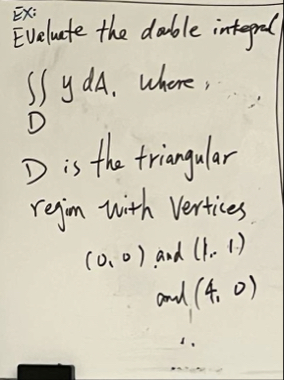 Ex:
Evaluate the double integral
∬ y dA. Where,
D
D is the triangular
region with vertices
(0,0) and (1, 1)
and (4, 0)